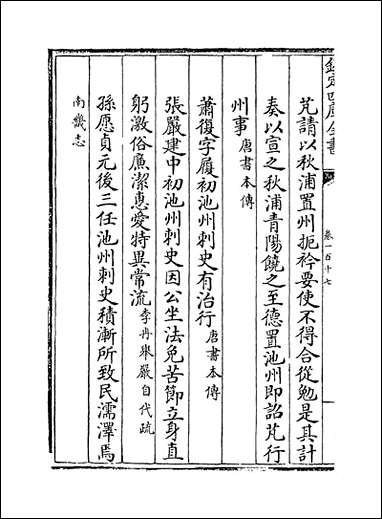 欽定四庫全書
卷一百十七
芃請以秋浦置州扼衿要使不得合從勉是其計
奏以宣之秋浦青陽饒之至德置池州即詔芃行
州事唐書本傳
蕭復字履初池州刺史有治行唐書本傳
張嚴建中初池州刺史因公坐法免苦節立身直
躬激俗廉潔惠愛特異常流李冉舉嚴自代疏
孫愿貞元後三任池州刺史積漸所致民濡澤焉
南畿志